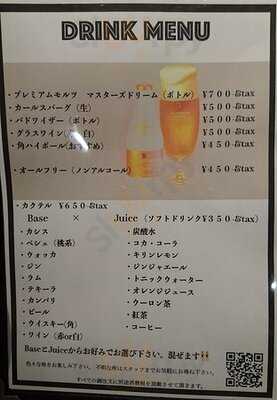 DRINK MENU
・プレミアムモルツ　マスターズドリーム（ボトル）　¥700-&tax
・カールスバーグ（生）　¥500-&tax
・バドワイザー（ボトル）　¥500-&tax
・グラスワイン（　白）　¥500-&tax
・角ハイボール(おすすめ)　¥450-&tax
・オールフリー（ノンアルコール）　¥450-&tax
・カクテル　¥650-&tax
Base　×　Juice（ソフトドリンク¥350-&tax）
・カシス　・炭酸水
・ペシェ（桃系）　・コカ・コーラ
・ウォッカ　・キリンレモン
・ジン　・ジンジャエール
・ラム　・トニックウォーター
・テキーラ　・オレンジジュース
・カンパリ　・ウーロン茶
・ビール　・紅茶
・ウイスキー(角)　・コーヒー
・ワイン（赤or白）
BaseとJuiceからお好みでお選び下さい。混ぜます
すべての御注文に別途消費税を頂戴させて頂きます。